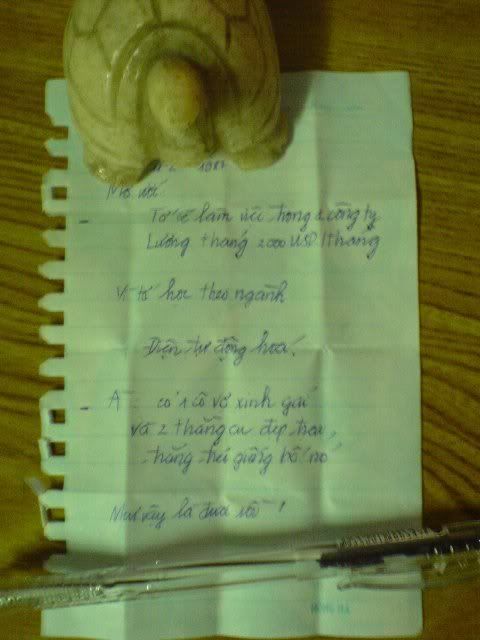 1987
Mơ ước:
- Tớ sẽ làm việc trong 1 công ty
Lương tháng 2000 USD/tháng
Vì tớ học theo ngành
Điện tự động hoá.
- À có 1 cô vợ xinh gái
và 2 thằng cu đẹp trai,
thằng trai giống bố nó
Như vậy là đưa rồi!